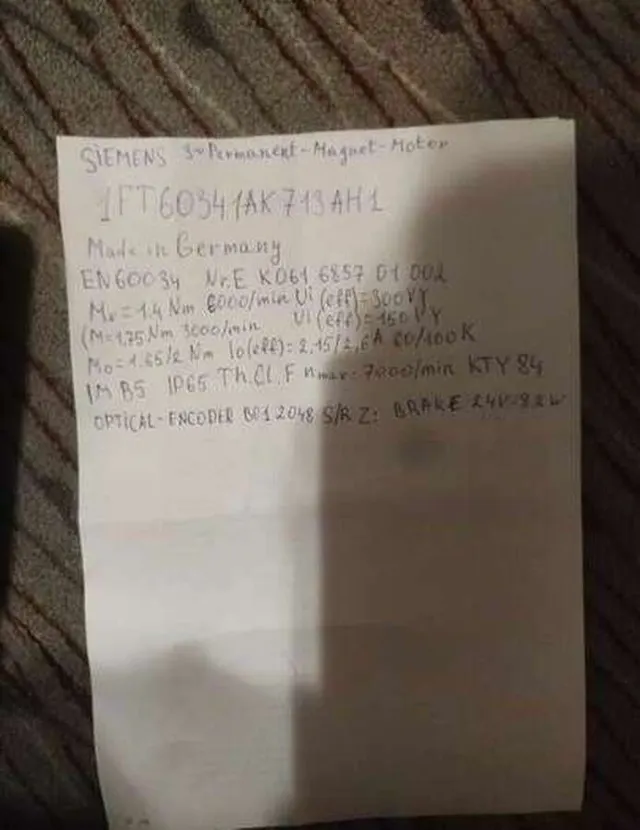 SIEMENS 3~Permanent-Magnet-Motor
1FT60341AK713AH1
Made in Germany
EN60034 Nr.E K061 6857 01 002
MN=1.4 Nm 6000/min Ui (eff)=300VY
(M=1.75 Nm 3000/min Ui (eff)=150VY
Mo=1.65/2 Nm Io(eff)=2,15/2,6A 60/100K
IM B5 IP65 Th.Cl.F nmax=7000/min KTY 84
OPTICAL-ENCODER 2048 S/R Z: BRAKE 24V